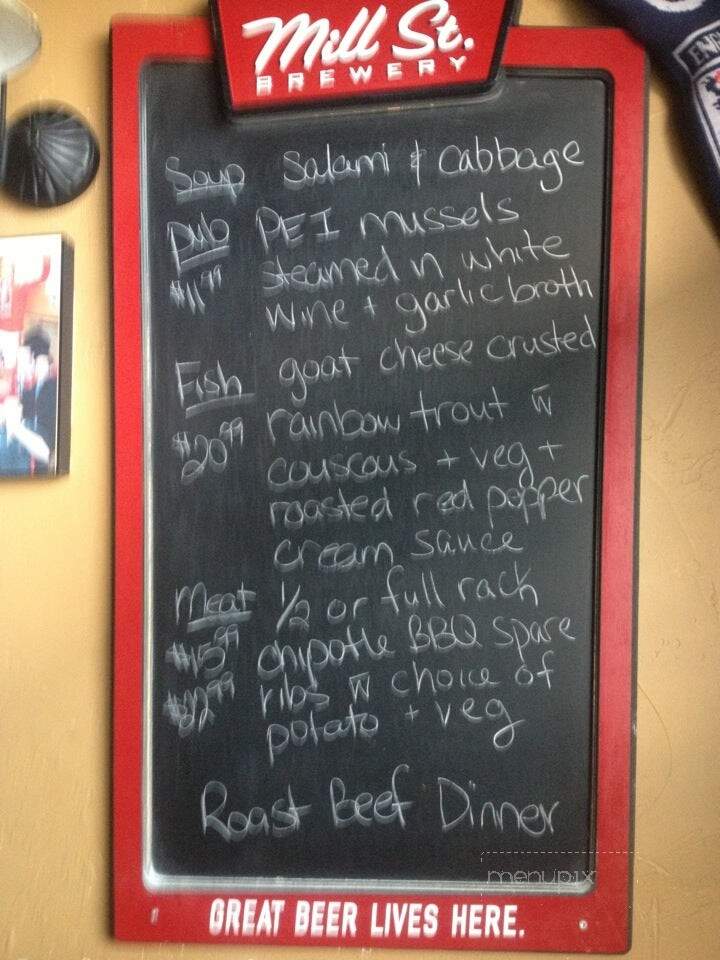 Mill St.
BREWERY
ENG
Soup Salami & cabbage
Pub PEI mussels
$11.99 steamed n white
wine + garlic broth
Fish goat cheese crusted
$20.99 rainbow trout w
couscous + veg +
roasted red pepper
cream sauce
Meat 1/2 or full rack
$15.99 chipotle BBQ spare
$22.99 ribs w choice of
potato + veg
Roast Beef Dinner
menupix
GREAT BEER LIVES HERE.